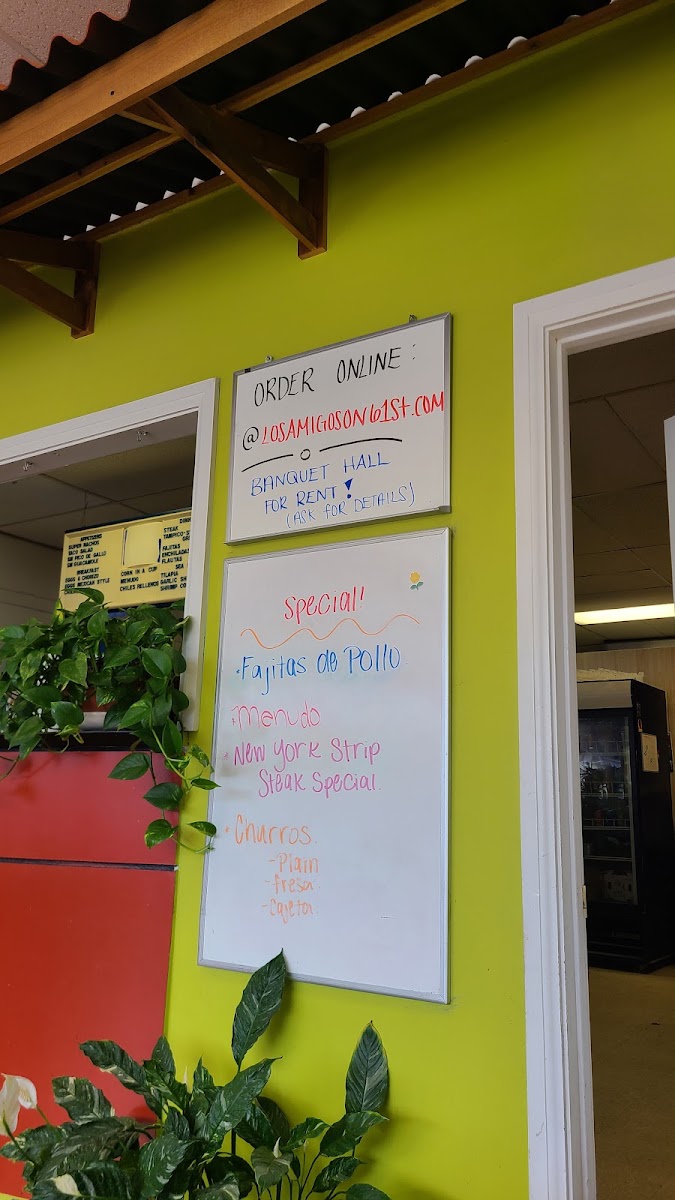 ORDER ONLINE:
@LOSAMIGOSON61St.COM
BANQUET HALL
FOR RENT!
(ASK FOR DETAILS)
Special!
·Fajitas de Pollo.
Menudo
New York Strip
Steak Special.
Churros.
-Plain
-fresa.
-Cajeta.
APPETIZERS
SUPER NACHOS
TACO SALAD
SM PICO DE GALLO
SM GUACAMOLE
BREAKFAST
EGGS & CHORIZO
EGGS MEXICAN STYLE
CORN IN A CUP
MENUDO
CHILES RELLENOS
STEAK
FAJITAS
ENCHILADAS
FLAUTAS
SEA
TILAPIA
GARLIC SH
SHRIMP CO